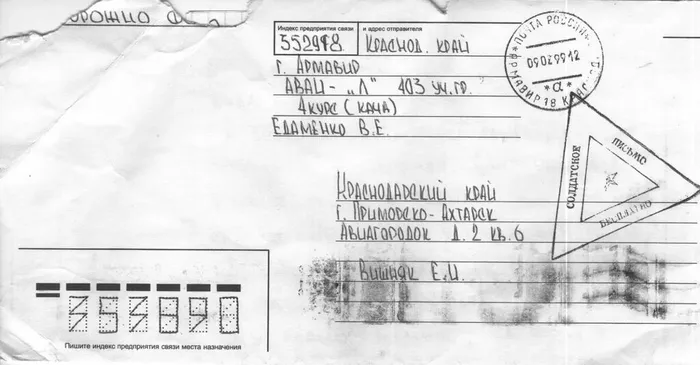 Индекс предприятия связи и адрес отправителя
552918 Краснод. край
г. Армавир
АВАЦ - „Л" 403 уч.гр.
4 курс (КАЧА)
Едаменко В.Е.
ПОЧТА РОССИИ
АРМАВИР 18 КРАСНОД.
*а*
СОЛДАТСКОЕ
ПИСЬМО
БЕСПЛАТНО
Краснодарский край
г. Приморско-Ахтарск
Авиагородок д. 2 кв. 6
Вишняк Е.И.
Пишите индекс предприятия связи места назначения